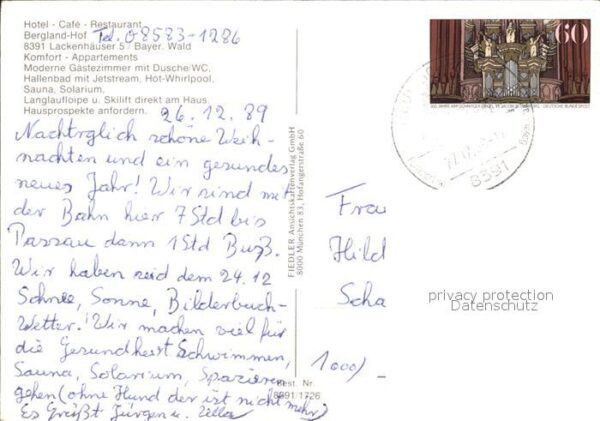 Hotel - Café - Restaurant
Bergland-Hof Tel. 08583-1286
8391 Lackenhäuser 5 / Bayer. Wald
Komfort - Appartements
Moderne Gästezimmer mit Dusche/WC,
Hallenbad mit Jetstream, Hot-Whirlpool,
Sauna, Solarium,
Langlaufloipe u. Skilift direkt am Haus.
Hausprospekte anfordern.
26.12.89
Nachtrglich schöne Weih-
nachten und ein gesundes
neues Jahr! Wir sind mit
der Bahn hier 7 Std bis
Passau dann 1 Std Buß.
Wir haben seid dem 24.12
Schnee, Sonne, Bilderbuch-
Wetter. Wir machen viel für
die Gesundheit Schwimmen,
Sauna, Solarium, Spazieren
gehen (ohne Hund der ist nicht mehr)
Es Grüßt Jürgen u. Ulla
Best. Nr.
8391/1726
FIEDLER Ansichtskartenverlag GmbH
8000 München 83, Hofangerstraße 60
60
DEUTSCHE BUNDESPOST
8391
Frau
Hild
Scha
1000/-
privacy protection
Datenschutz